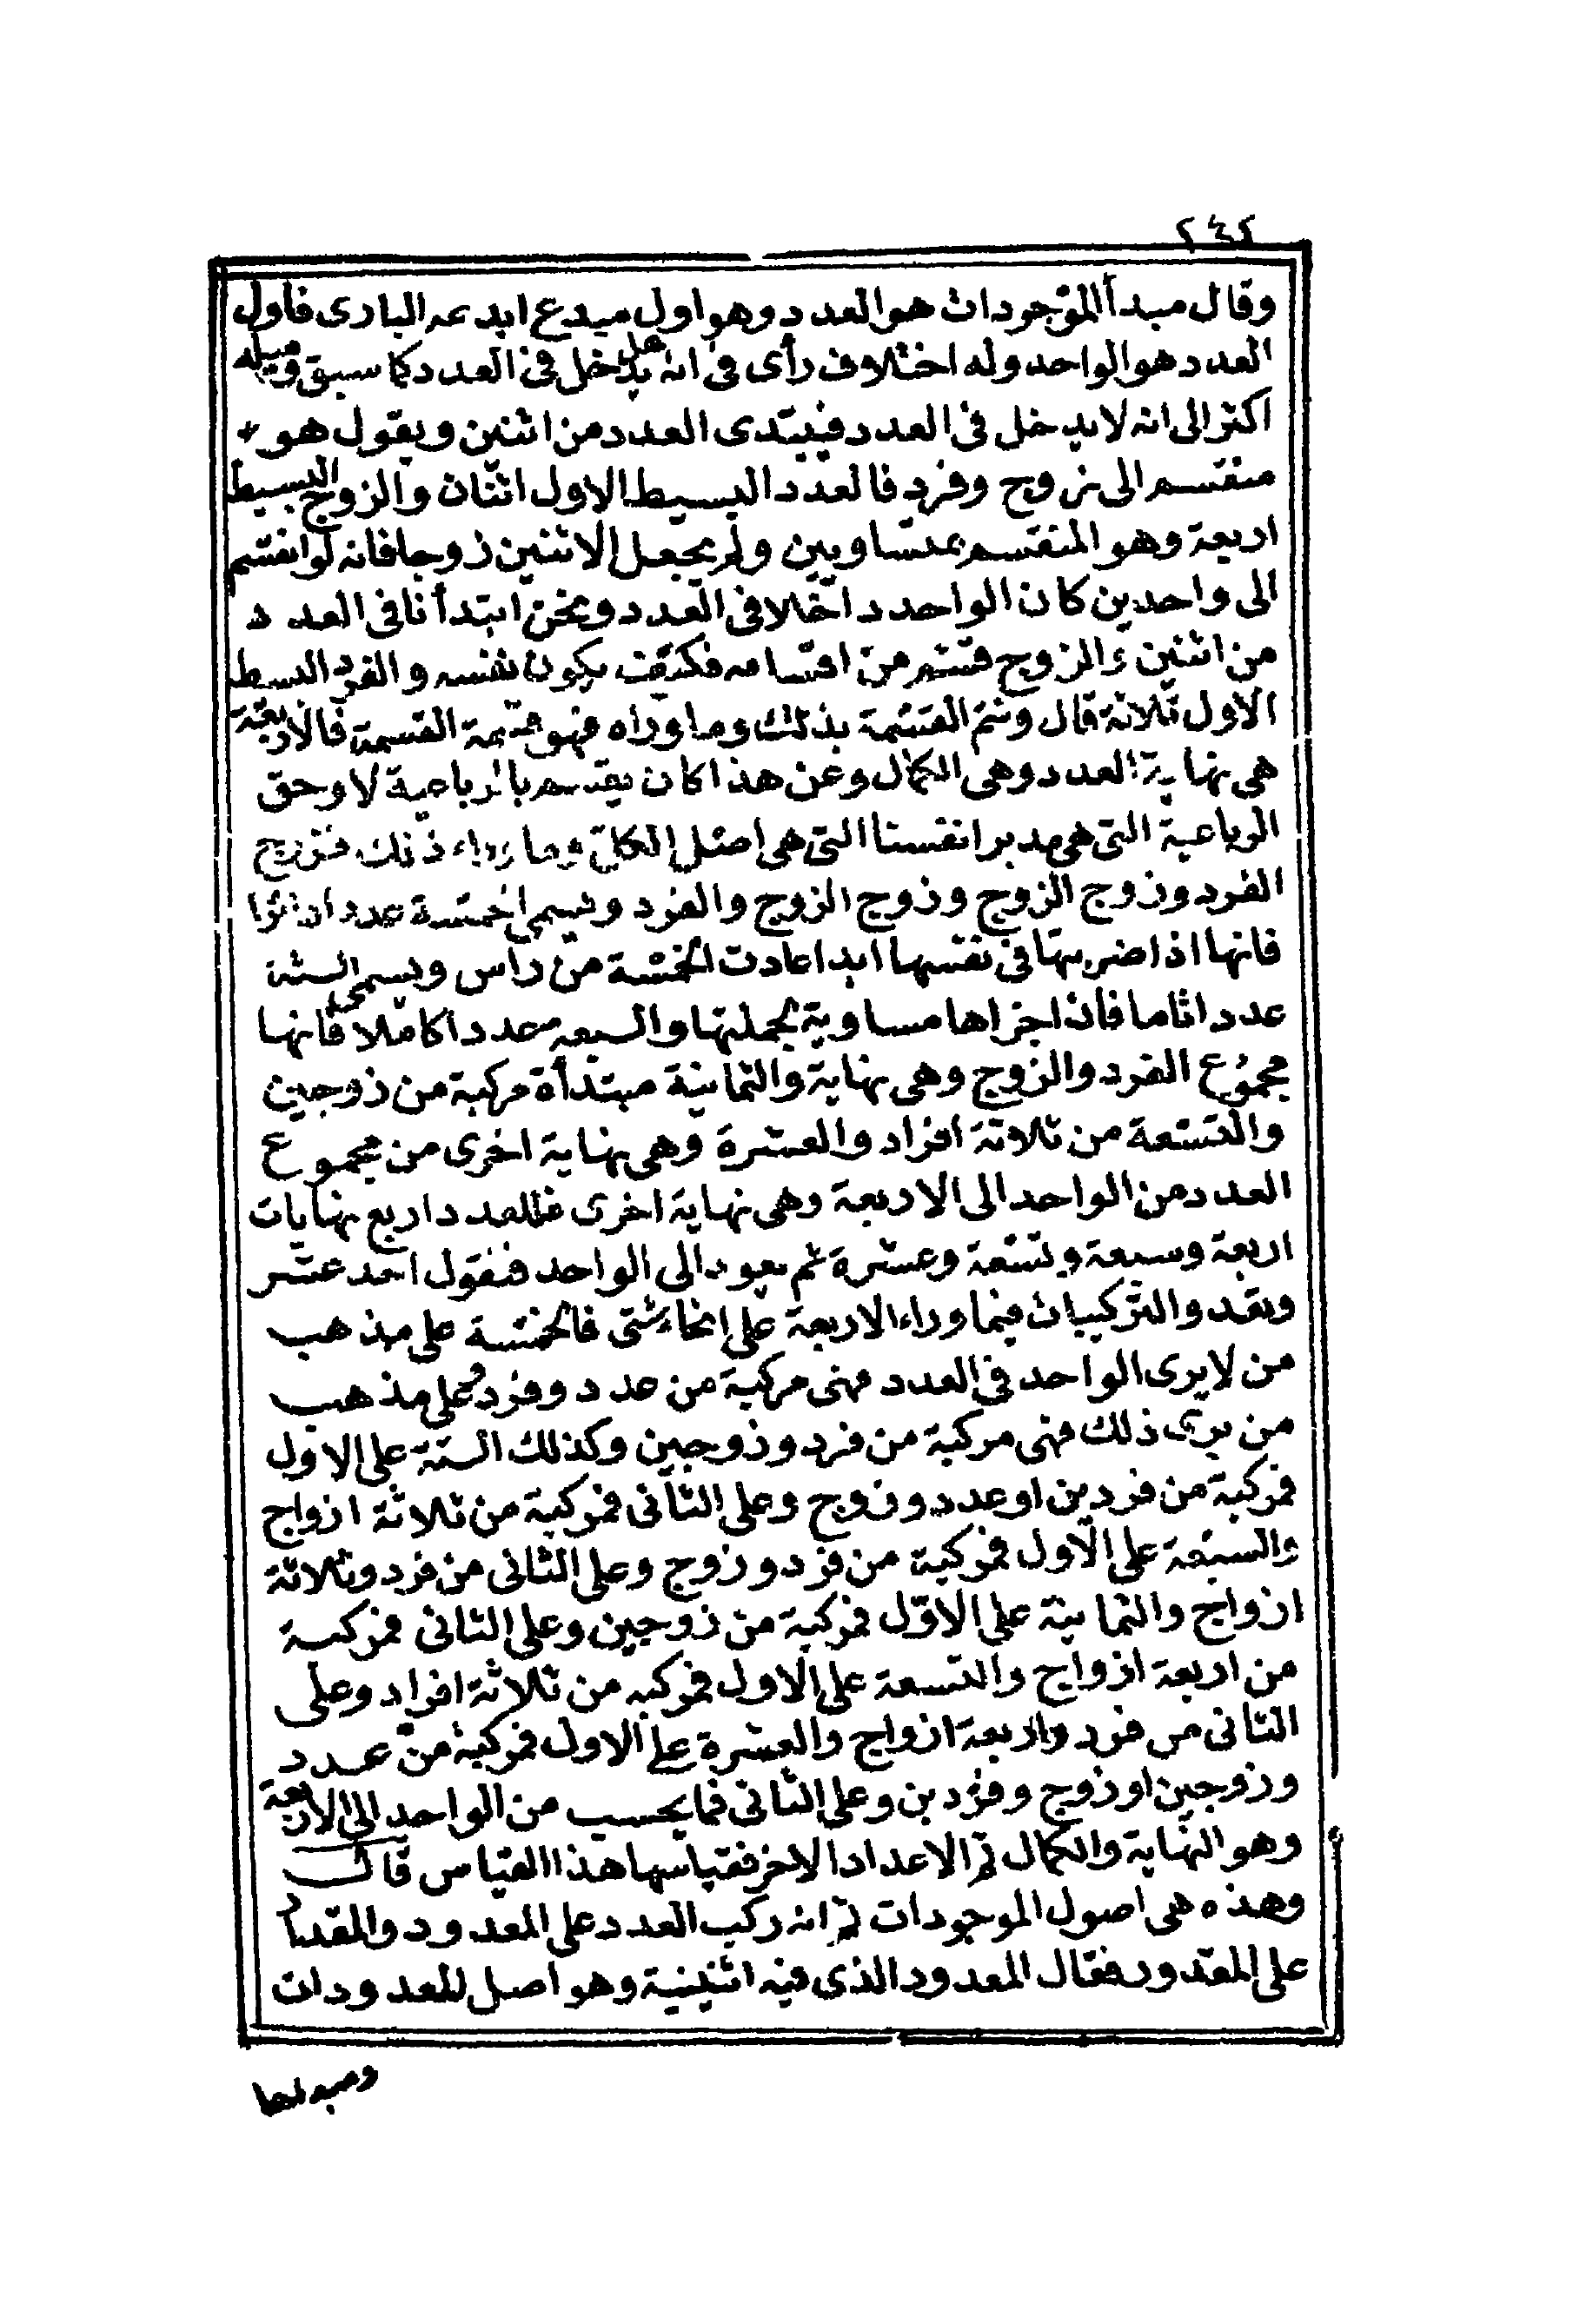 ٢٤٢
وقال مبدأ الموجودات هو العدد وهو اول مبدع ابدعه البارى فأول
العدد هو الواحد وله اختلاف رأى فى انه هل يدخل فى العدد كما سبق وميله
اكثر الى انه لا يدخل فى العدد فيبتدى العدد من اثنين ويقول هو
منقسم الى زوج وفرد فالعدد البسيط الاول اثنان والزوج البسيط
اربعة وهو المنقسم بمتساويين ولم يجعل الاثنين زوجا فانه لو انقسم
الى واحدين كان الواحد داخلا فى العدد ونحن ابتدأنا فى العدد
من اثنين والزوج قسم من اقسامه فكيف يكون نفسه والفرد البسيط
الاول ثلاثة قال وتتم القسمة بذلك وما وراه فهو قسمة القسمة فالاربعة
هى نهاية العدد وهى الكمال وعن هذا كان يقسم بالرباعية لا وحق
الرباعية التى هى مدبر انفسنا التى هى اصل الكل وما وراء ذلك فزوج
الفرد وزوج الزوج وزوج الزوج والفرد ويسمى الخمسة عددا دائرا
فانها اذا ضربتها فى نفسها ابدا عادت الخمسة من رأس ويسمى الستة
عددا تاما فان اجزاها مساوية لجملتها والسبعه عددا كاملا فانها
مجموع الفرد والزوج وهى نهاية والثمانية مبتدأة مركبة من زوجين
والتسعة من ثلاثة افراد والعشرة وهى نهاية اخرى من مجموع
العدد من الواحد الى الاربعة وهى نهاية اخرى فللعدد اربع نهايات
اربعة وسبعة وتسعة وعشرة ثم يعود الى الواحد فنقول احد عشر
وبعد والتركيبات فيما وراء الاربعة على انحاء شتى فالخمسة على مذهب
من لا يرى الواحد فى العدد فهى مركبة من عدد وفرد وعلى مذهب
من يرى ذلك فهى مركبة من فرد وزوجين وكذلك الستة على الاول
فمركبة من فردين او عدد وزوج وعلى الثانى فمركبة من ثلاثة ازواج
والسبعة على الاول فمركبة من فرد وزوج وعلى الثانى من فرد وثلاثة
ازواج والثمانية على الاول فمركبة من زوجين وعلى الثانى فمركبة
من اربعة ازواج والتسعة على الاول فمركبه من ثلاثة افراد وعلى
الثانى من فرد واربعة ازواج والعشرة على الاول فمركبة من عدد
وزوجين او زوج وفردين وعلى الثانى فما يحسب من الواحد الى الاربعة
وهو النهاية والكمال ثم الاعداد الاخر فقياسها هذا القياس قال
وهذه هى اصول الموجودات ثم انه ركب العدد على المعدود والمقدار
على المقدور فقال المعدود الذى فيه اثنينية وهو اصل للمعدودات
ومبدأها